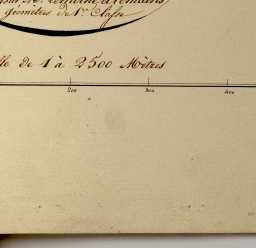 géomètre de 1re Classe
lle de 1 à 2500 Mètres
200 300 400